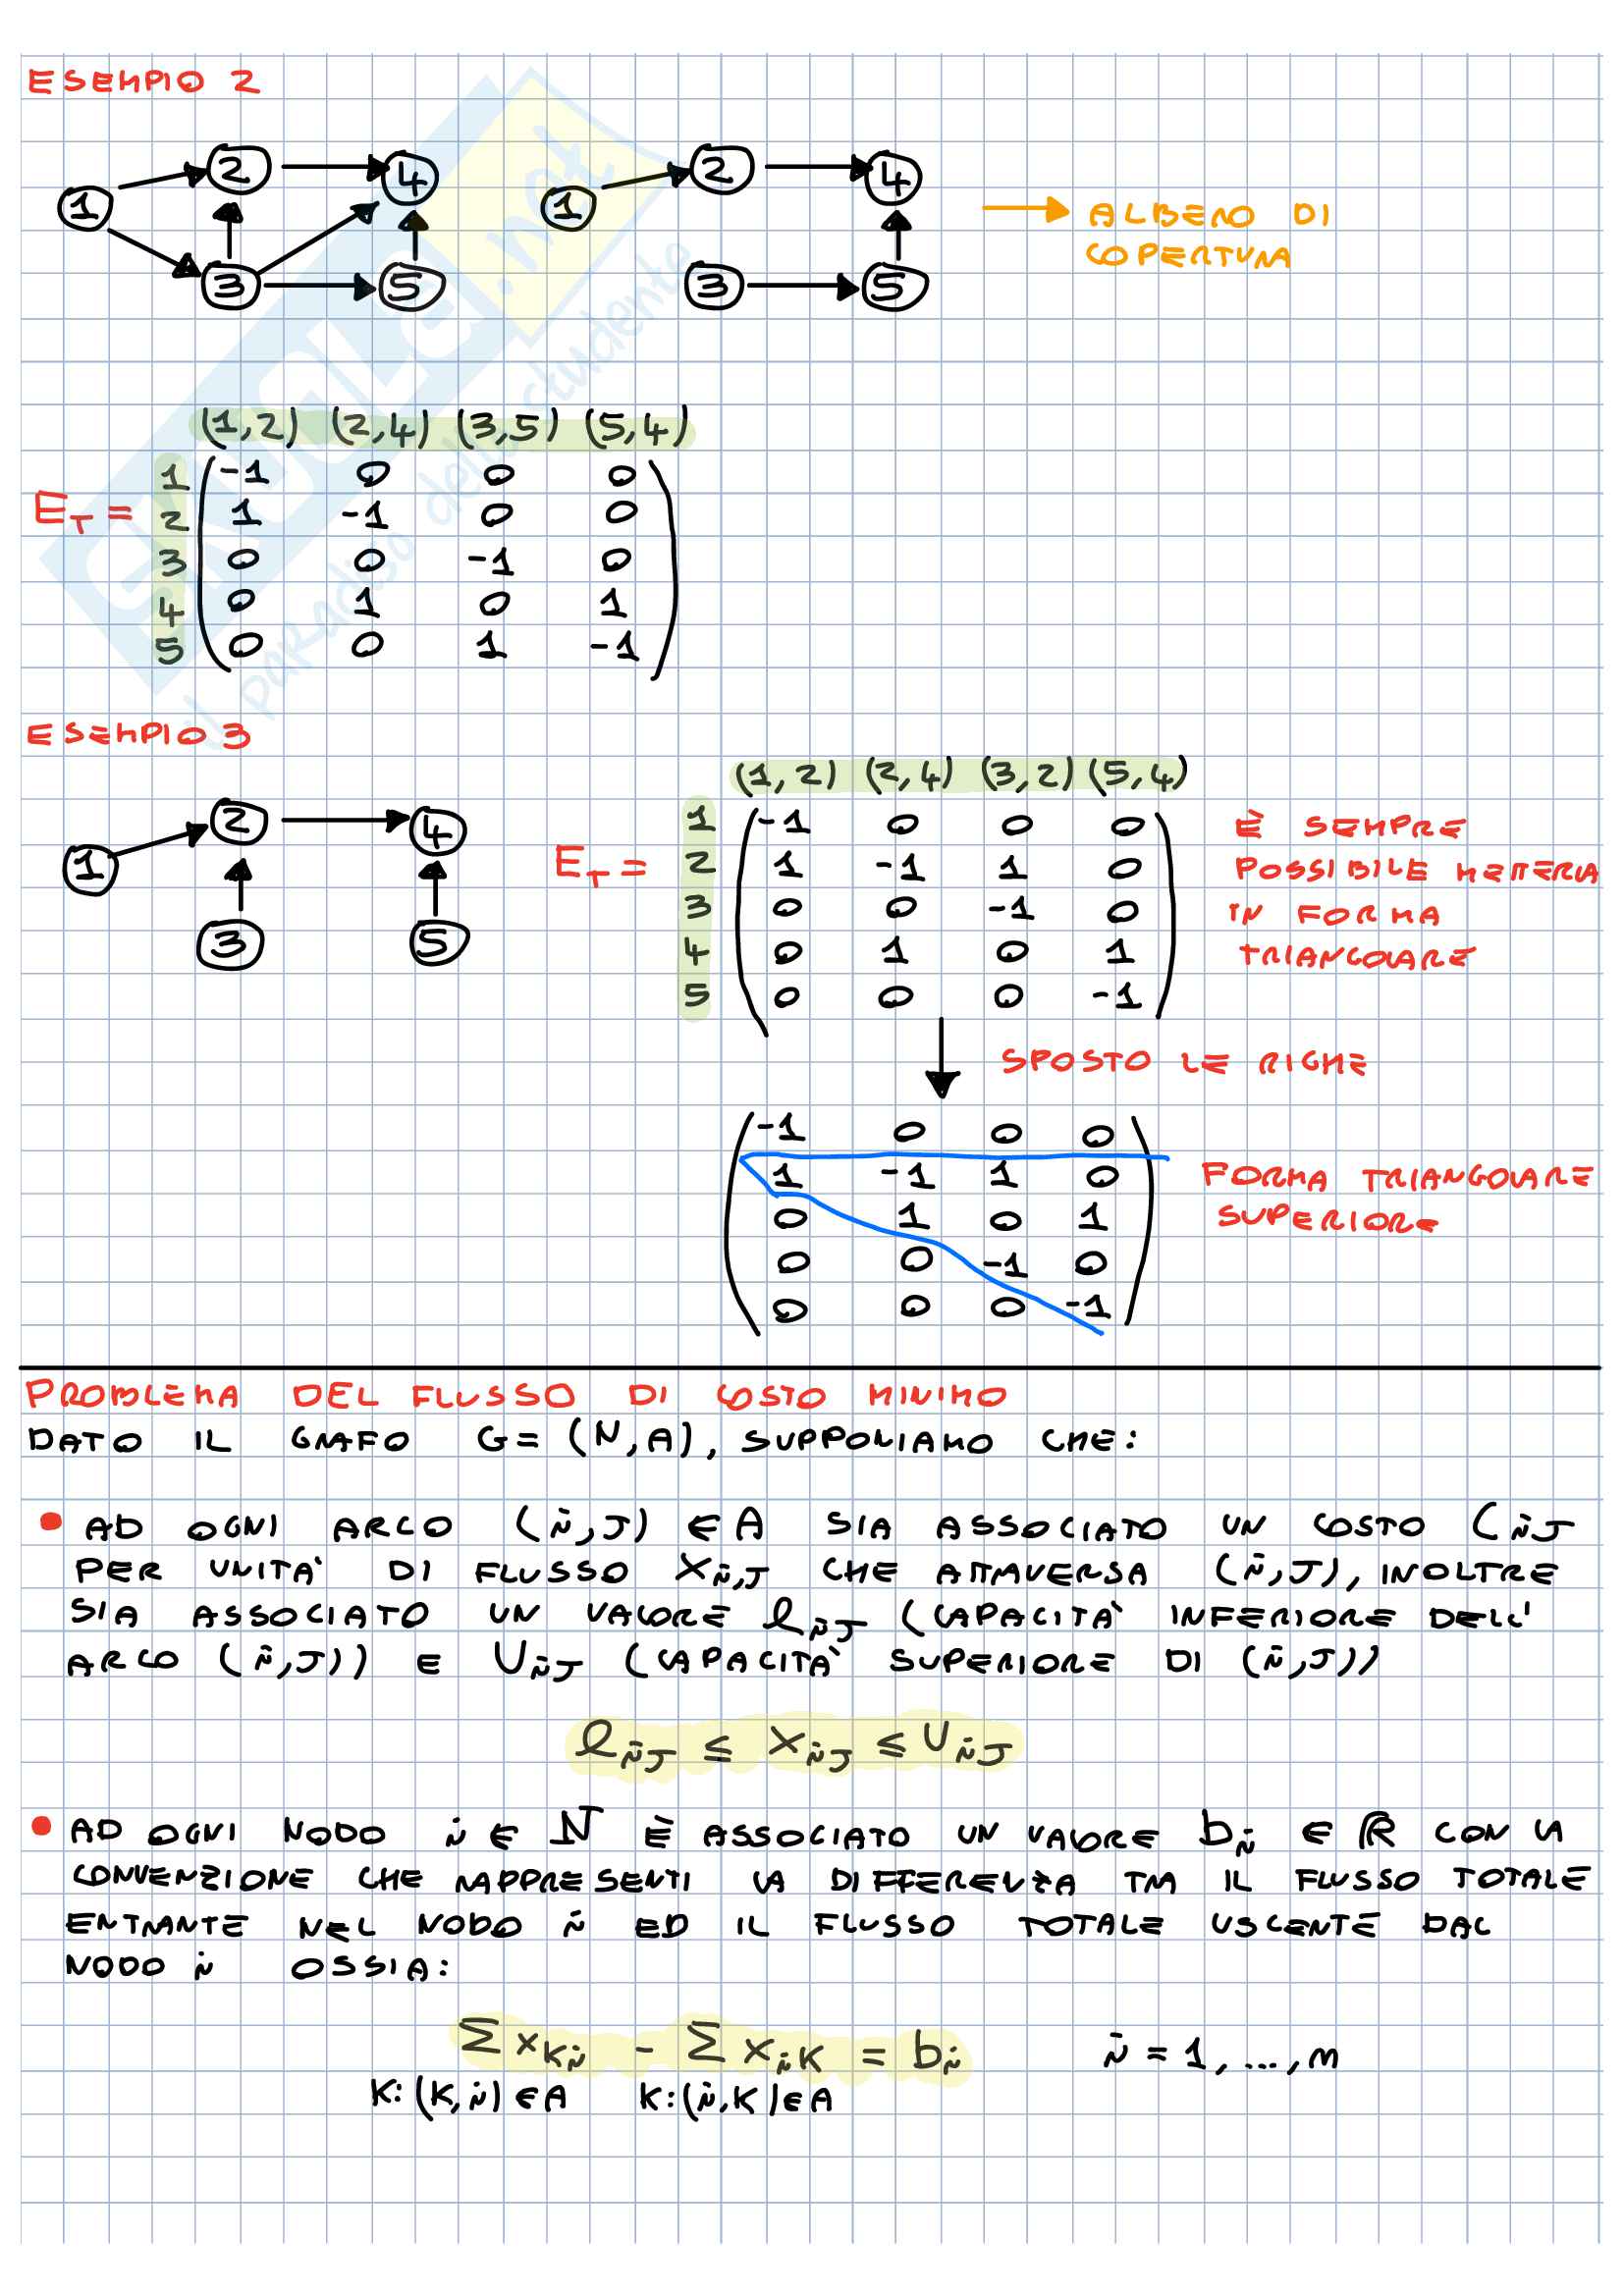 ESEMPIO 2
1 2 4 3 5
1 2 4 3 5
ALBERO DI
COPERTURA
(1,2) (2,4) (3,5) (5,4)
1 -1 0 0 0
E_T = 2 1 -1 0 0
3 0 0 -1 0
4 0 1 0 1
5 0 0 1 -1
SKUOLA.net
il paradiso dello studente
ESEMPIO 3
1 2 4 3 5
(1,2) (2,4) (3,2) (5,4)
1 -1 0 0 0
E_T = 2 1 -1 1 0
3 0 0 -1 0
4 0 1 0 1
5 0 0 0 -1
È SEMPRE
POSSIBILE METTERLA
IN FORMA
TRIANGOLARE
SPOSTO LE RIGHE
-1 0 0 0
1 -1 1 0
0 1 0 1
0 0 -1 0
0 0 0 -1
FORMA TRIANGOLARE
SUPERIORE
PROBLEMA DEL FLUSSO DI COSTO MINIMO
DATO IL GRAFO G = (N,A), SUPPONIAMO CHE:
• AD OGNI ARCO (i,J) ∈ A SIA ASSOCIATO UN COSTO C_iJ
PER UNITA' DI FLUSSO X_i,J CHE ATTRAVERSA (i,J), INOLTRE
SIA ASSOCIATO UN VALORE l_iJ (CAPACITA' INFERIORE DELL'
ARCO (i,J)) E U_iJ (CAPACITA' SUPERIORE DI (i,J))
l_iJ ≤ X_iJ ≤ U_iJ
• AD OGNI NODO i ∈ N È ASSOCIATO UN VALORE b_i ∈ ℝ CON LA
CONVENZIONE CHE RAPPRESENTI LA DIFFERENZA TRA IL FLUSSO TOTALE
ENTRANTE NEL NODO i ED IL FLUSSO TOTALE USCENTE DAL
NODO i OSSIA:
Σ x_Ki - Σ x_iK = b_i i = 1, ..., m
K:(K,i) ∈ A K:(i,K) ∈ A